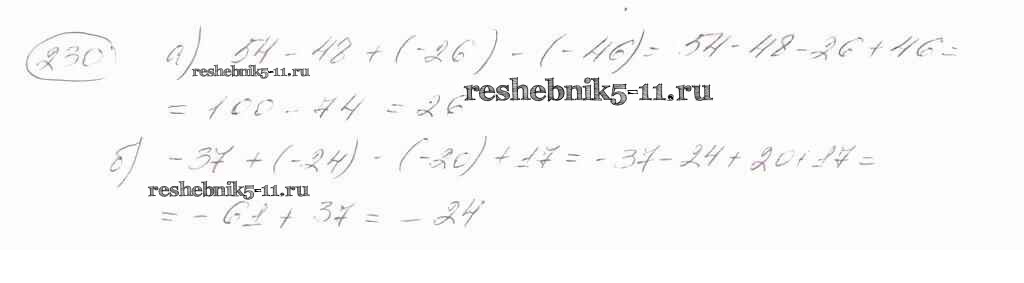 230 а) 54 - 48 + (-26) - (-46) = 54 - 48 - 26 + 46 =
reshebnik5-11.ru
reshebnik5-11.ru
= 100 - 74 = 26
б) -37 + (-24) - (-20) + 17 = -37 - 24 + 20 + 17 =
reshebnik5-11.ru
= - 61 + 37 = - 24